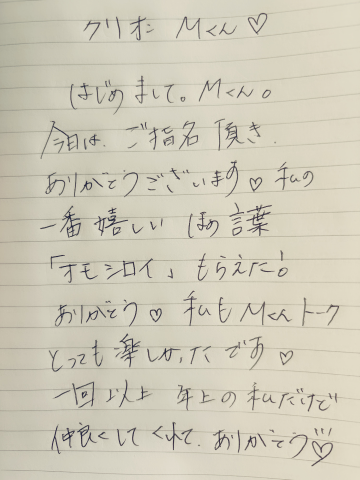 クリオネ Mくん♡
はじめまして。Mくん。
今日は、ご指名頂き、
ありがとうございます♡ 私の
一番 嬉しい ほめ 言葉
「オモシロイ」もらえた!
ありがとう♡ 私も Mくんトーク
とっても 楽しかったです♡
一回以上 年上の私だけど
仲良くしてくれて、ありがとう♡